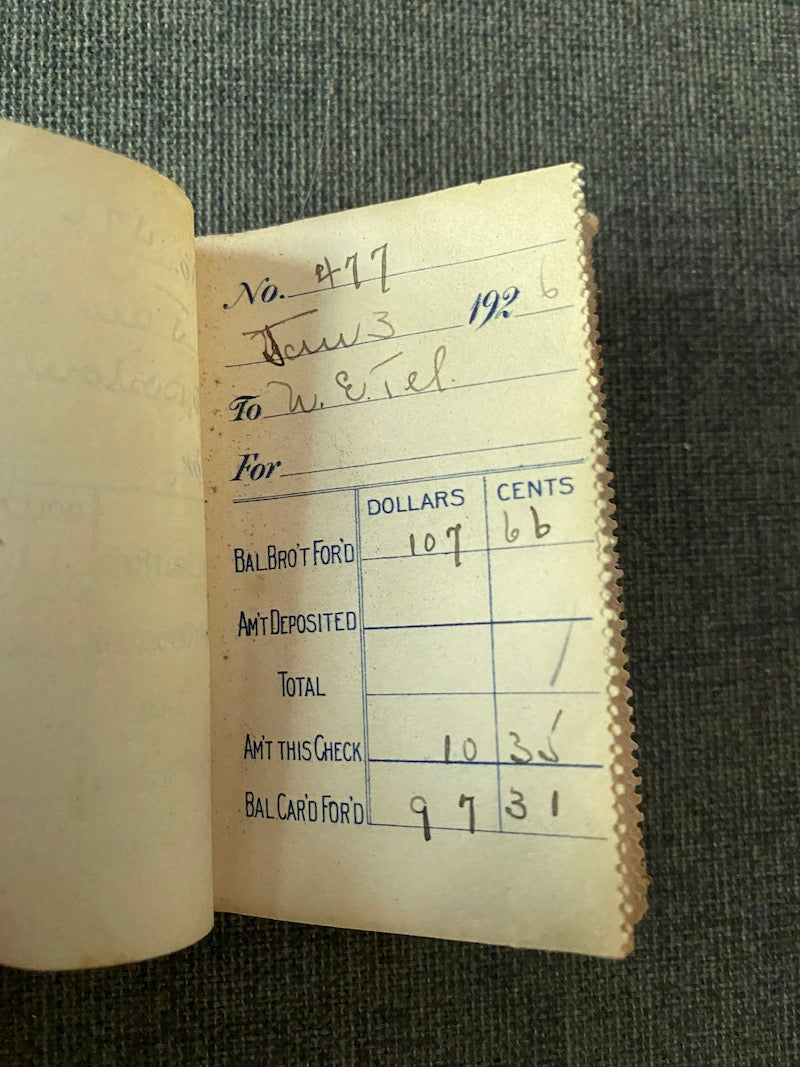 No. 477
Jan 3 1926
To W. E. Tel.
For
DOLLARS CENTS
BAL. BRO'T FOR'D 107 66
AM'T DEPOSITED
TOTAL
AM'T THIS CHECK 10 35
BAL. CAR'D FOR'D 97 31